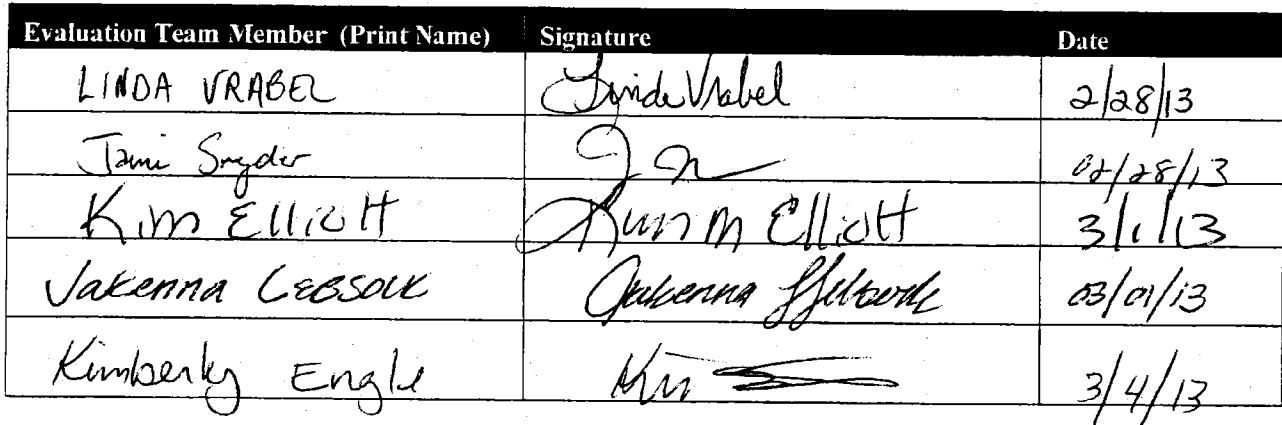 Evaluation Team Member (Print Name) Signature Date
LINDA VRABEL Linda Vrabel 2/28/13
Jami Snyder 02/28/13
Kim Elliott Kim M Elliott 3/1/13
Jakenna Lebsock Jakenna Lebsock 03/01/13
Kimberly Engle 3/4/13